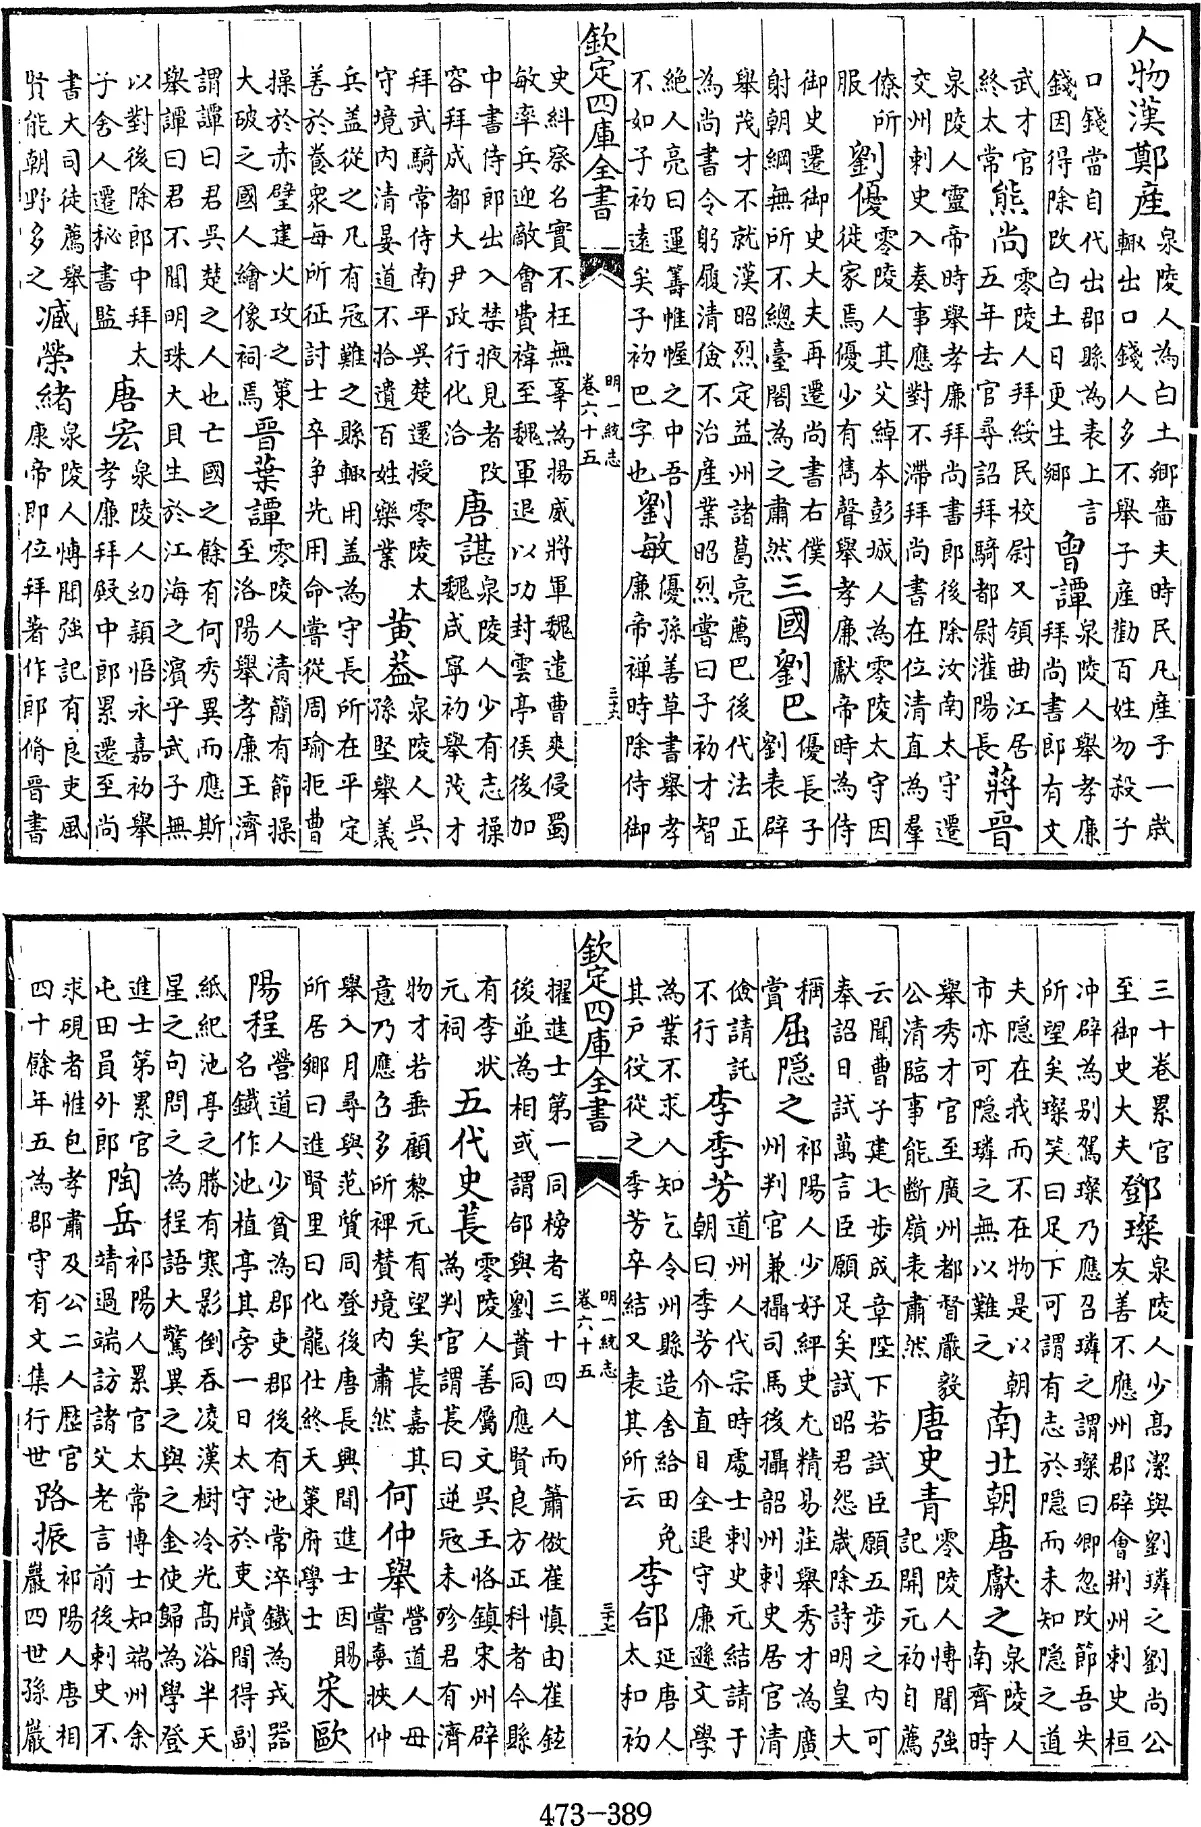 人物漢鄭産
泉陵人為白土鄉嗇夫時民凡産子一歲
輒出口錢人多不舉子産勸百姓勿殺子
口錢當自代出郡縣為表上言
錢因得除改白土日更生鄉
曾譚
泉陵人舉孝廉
拜尚書郎有文
武才官
終太常
熊尚
零陵人拜綏民校尉又領曲江居
五年去官尋詔拜騎都尉灌陽長
蔣晉
泉陵人靈帝時舉孝廉拜尚書郎後除汝南太守遷
交州刺史入奏事應對不滯拜尚書在位清直為羣
僚所
服
劉優
零陵人其父綽本彭城人為零陵太守因
徙家焉優少有雋聲舉孝廉獻帝時為侍
御史遷御史大夫再遷尚書右僕
射朝綱無所不總臺閣為之肅然
三國劉巴
優長子
劉表辟
舉茂才不就漢昭烈定益州諸葛亮薦巴後代法正
為尚書令躬履清儉不治産業昭烈嘗曰子初才智
絶人亮曰運籌惟幄之中吾
不如子初遠矣子初巴字也
劉敏
優孫善草書舉孝
廉帝禪時除侍御
欽定四庫全書
明一統志
卷六十五
三十六
史糾察名實不枉無辜為揚威將軍魏遣曹爽侵蜀
敏率兵迎敵會費禕至魏軍退以功封雲亭侯後加
中書侍郎出入禁掖見者改
容拜成都大尹政行化洽
唐諶
泉陵人少有志操
魏咸寧初舉茂才
拜武騎常侍南平吳楚還授零陵太
守境内清晏道不拾遺百姓樂業
黄蓋
泉陵人吳
孫堅舉義
兵蓋從之凡有冦難之縣輙用蓋為守長所在平定
善於養衆每所征討士卒爭先用命嘗從周瑜拒曹
操於赤壁建火攻之策
大破之國人繪像祠焉
晉葉譚
零陵人清簡有節操
至洛陽舉孝廉王濟
謂譚曰君吳楚之人也亡國之餘有何秀異而應斯
舉譚曰君不聞明珠大貝生於江海之濱乎武子無
以對後除郎中拜太
子舍人遷秘書監
唐宏
泉陵人幼穎悟永嘉初舉
孝廉拜殿中郎累遷至尚
書大司徒薦舉
賢能朝野多之
臧榮緒
泉陵人博聞強記有良吏風
康帝即位拜著作郎脩晉書
三十卷累官
至御史大夫
鄧璨
泉陵人少髙潔與劉璘之劉尚公
友善不應州郡辟會荆州刺史桓
冲辟為别駕璨乃應召璘之謂璨曰卿忽改節吾失
所望矣璨笑曰足下可謂有志於隠而未知隠之道
夫隠在我而不在物是以朝
市亦可隠璘之無以難之
南北朝唐獻之
泉陵人
南齊時
舉秀才官至廣州都督嚴毅
公清臨事能斷嶺表肅然
唐史青
零陵人博聞強
記開元初自薦
云聞曹子建七步成章陛下若試臣願五步之内可
奉詔日試萬言臣願足矣試昭君怨歳除詩明皇大
稱
賞
屈隠之
祁陽人少好經史尤精易莊舉秀才為廣
州判官兼攝司馬後攝韶州刺史居官清
儉請託
不行
李季芳
道州人代宗時處士刺史元結請于
朝曰季芳介直自全退守廉遜文學
為業不求人知乞令州縣造舍給田免
其戸役從之季芳卒結又表其所云
李郃
延唐人
太和初
欽定四庫全書
明一統志
卷六十五
三十七
擢進士第一同榜者三十四人而蕭倣崔慎由崔鉉
後並為相或謂郃與劉蕡同應賢良方正科者今縣
有李狀
元祠
五代史萇
零陵人善屬文吳王恪鎮宋州辟
為判官謂萇曰逆冦未殄君有濟
物才若垂顧黎元有望矣萇嘉其
意乃應召多所裨賛境内肅然
何仲舉
營道人母
嘗夢挾仲
舉入月尋與范質同登後唐長興間進士因賜
所居鄉曰進賢里曰化龍仕終天策府學士
宋歐
陽程
營道人少貧為郡吏郡後有池常淬鐵為戎器
名鐵作池植亭其旁一日太守於吏牘間得副
紙紀池亭之勝有寒影倒吞凌漢樹冷光髙浴半天
星之句問之為程語大驚異之與之金使歸為學登
進士第累官
屯田員外郎
陶岳
祁陽人累官太常博士知端州余
靖過端訪諸父老言前後刺史不
求硯者惟包孝肅及公二人歴官
四十餘年五為郡守有文集行世
路振
祁陽人唐相
巖四世孫巖
473-389